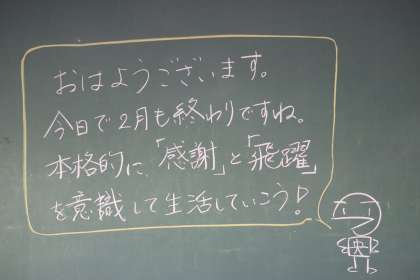 おはようございます。
今日で2月も終わりですね。
本格的に、「感謝」と「飛躍」
を意識して生活していこう!